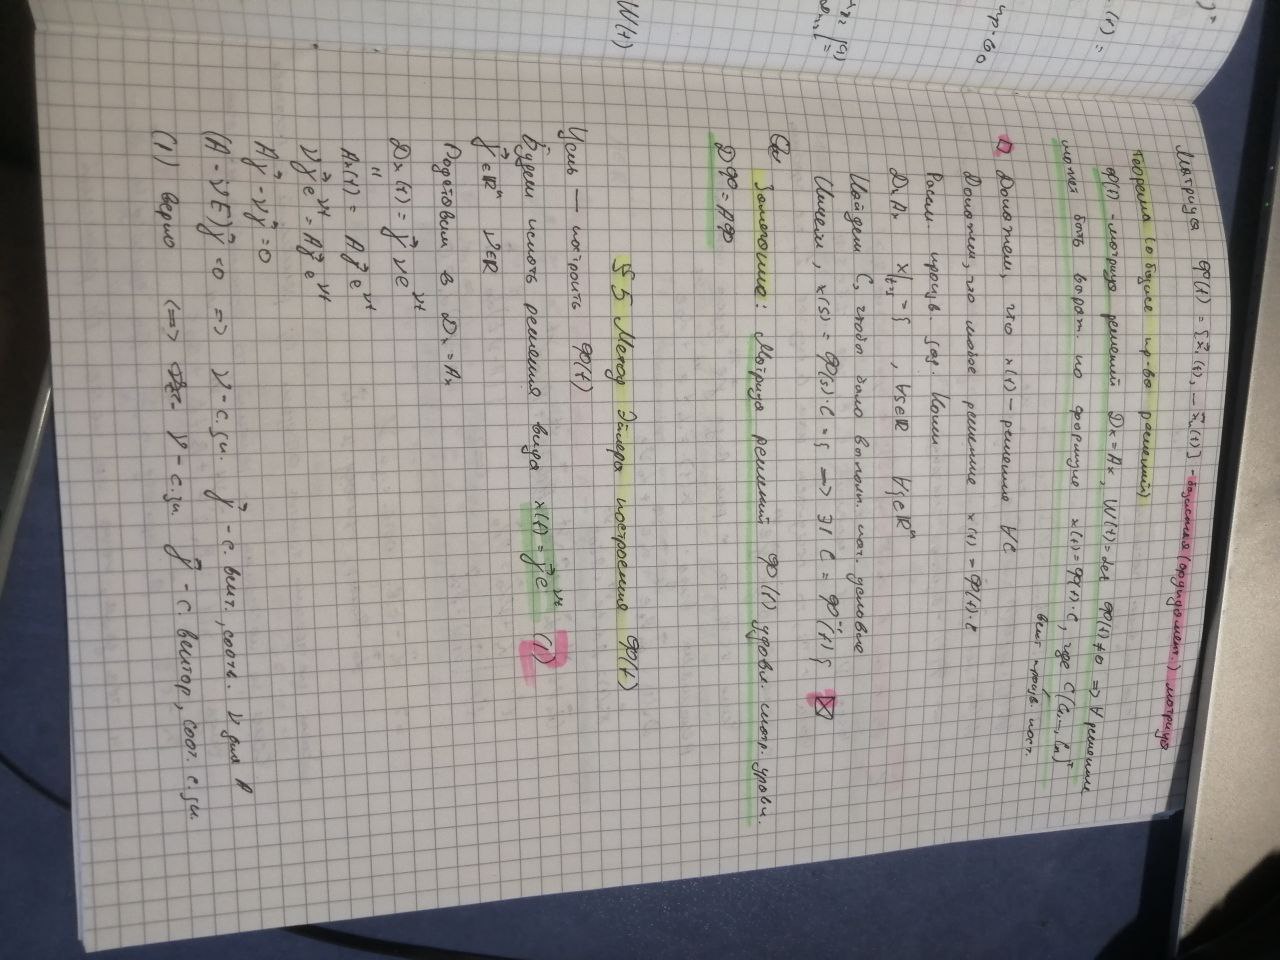 )ᵀ
(t) =
пр-во
W(t)
Матрица Φ(t) = [x⃗₁(t), ... x⃗ₙ(t)] - базисная (фундамент.) матрица
Теорема (о базисе пр-ва решений)
Φ(t) - матрица решений Dx = Ax, W(t) = det Φ(t) ≠ 0 => ∀ решение
может быть выраж. по формуле x(t) = Φ(t)·C, где C(C₁, ..., Cₙ)ᵀ
вект произв. пост.
Докажем, что x(t) – решение ∀C
Докажем, что любое решение x(t) = Φ(t)·C
Рассм. произв. зад. Коши
Dx Ax x|t=s = ξ , ∀s∈ℝ ∀ξ∈ℝⁿ
Найдем C, чтобы было выполн. нач. условие
Имеем, x(s) = Φ(s)·C = ξ => ∃! C = Φ⁻¹(t) ξ
Замечание: Матрица решений Φ(t) удовл. матр. уравн.
DΦ = AΦ
§ 5 Метод Эйлера построения Φ(t)
Цель — построить Φ(t)
Будем искать решения вида x(t) = γ⃗ e^νt (1)
γ⃗ ∈ ℝⁿ ν∈ℝ
Подставим в Dx = Ax
Dx(t) = γ⃗ νe^νt
"
Ax(t) = Aγ⃗ e^νt
νγ⃗ e^νt = Aγ⃗ e^νt
Aγ⃗ - νγ⃗ = 0
(A - νE)γ⃗ = 0 => ν - с.зн. γ⃗ - с. вект., соотв. ν для A
(1) верно <=> ν - с.зн. γ⃗ - с. вектор, соот. с.зн.